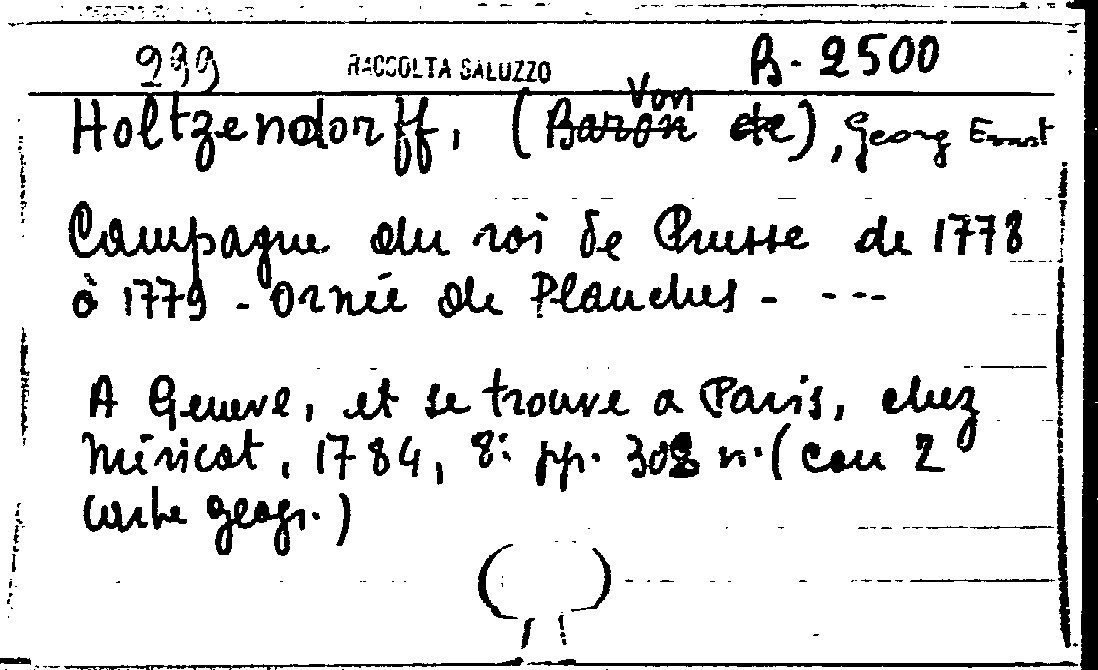 239 RACCOLTA SALUZZO B-2500
Holtzendorff, (Baron de) Von, Georg Ernst
Campagne du roi de Prusse de 1778
à 1779 - Ornée de Planches - ---
A Geneve, et se trouve a Paris, chez
Méricot, 1784, 8: pp. 308 n. (con 2
carte geogr.)